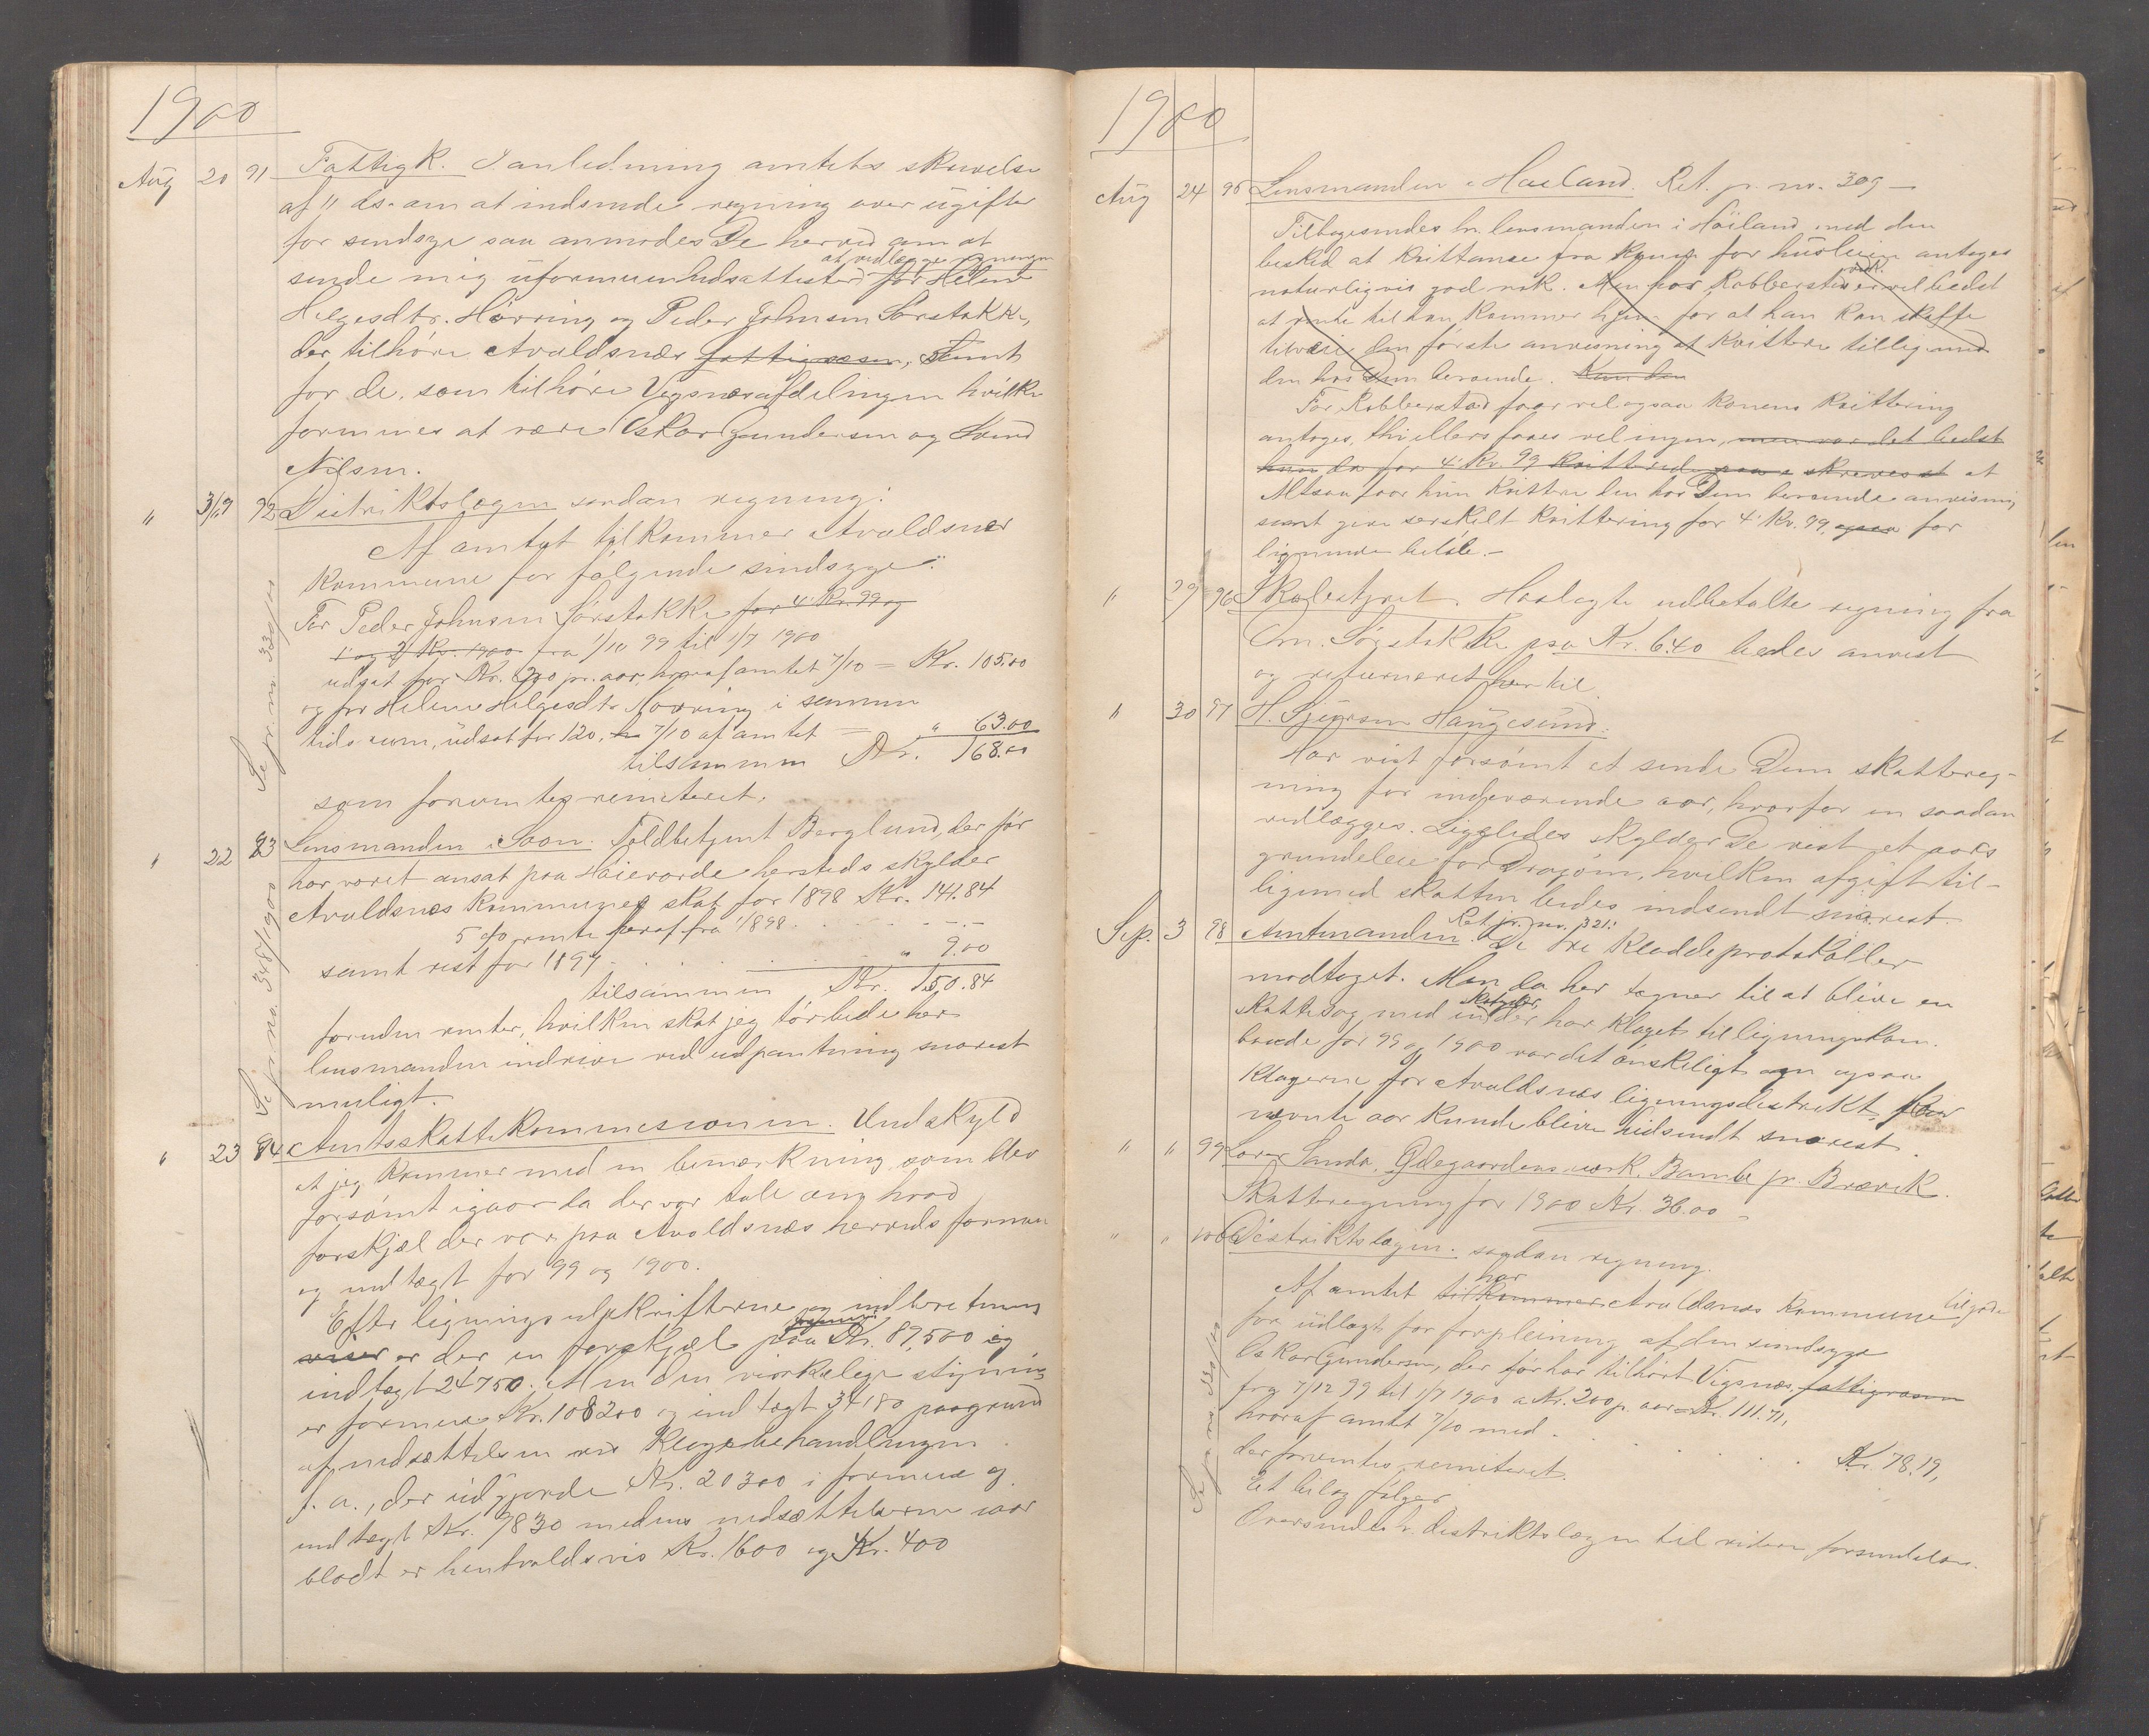 1900
Aug 20 91 Fattigk. I anledning amtets skrivelse
af 11 ds. om at indsende regning over ugifter
for sindsyge saa anmodes De herved om at
at vedlægge regningen
sende mig uformuenhedsattester for Helene
Helgesdtr. Hövring og Peder Johnsen Sörstokke,
der tilhöre Avaldsnæs fattigvæsen, samt
for de, som tilhöre Vigsnæsafdelingen hvilke
formenes at være Oskar Gundersen og Svend
Nilsen.
" 92 Distriktslægen saadan regning:
Af amtet tilkommer Avaldsnes
Kommune for fölgende sindsyge:
For Peder Johnsen Sörstokke for 4' Kv. 99 og
1' og 2' Kv. 1900 fra 1/10 99 til 1/7 1900
udsat for Kr. 200 pr. aar, hvoraf amtet 7/10 = Kr. 105.00
og for Helene Helgesdtr Hövring i samme
tidsrum, udsat for 120. 7/10 af amtet = " 63.00
tilsammen Kr. 168.00
som forventes remiteret.
" 22 93 Lensmanden i Soon. Toldbetjent Berglund, der för
har været ansat paa Haievarde hersteds skylder
Avaldsnæs Kommunes skat for 1898 Kr. 141.84
5 % rente heraf fra 1/898
samt rest for 1897 " 9.00
tilsammen Kr. 150.84
foruden renter, hvilken skat jeg törbede hr.
lensmanden inddrive ved udpantning snarest
muligt.
" 23 94 Amtsskattekommissionen. Undskyld
at jeg kommer med en bemærkning som blev
forsömt igaar da der var tale om hvad
forskjel der var paa Avaldsnæs herreds formue
og indtægt for 99 og 1900.
Efter ligningsudskrifterne og indberetningen
viser er der en forskjel paa Kr. 89,500 og
indtægt 24750. Men den virkelige stigning
er formue Kr. 108200 og indtægt 34180 paagrund
af nedsættelsen ved klagebehandlingen
f. a., der udgjorde Kr. 20300 i formue og
indtægt Kr. 7830 medens nedsættelserne iaar
blodt er henholdsvis Kr. 1600 og Kr. 400
Se jr. no. 339/00
Se jr. no. 348/900
1900
Aug 24 95 Lensmanden i Haaland. Ret. jr. no. 309 —
Tilbagesendes hr. lensmanden i Höiland med den
besked at kvittanse fra konen for husleien antages
naturligvis god nok. Men for Robberstad er vel bedst
at vente til han kommer hjem for at han kan skaffe
tilveie den förste anvisning at kvittere tilligemed
den hos Dem beroende. Kan den
For Robberstad faar vel ogsaa konens kvittering
antages, thi ellers faaes vel ingen, men var det bedst
hun da for 4' Kv. 99 kvitterede paa a skreves at at
Altsaa faar hun kvittere den hos Dem beroende anvisning
samt give særskilt kvittering for 4' Kv. 99, ogsaa for
lignende belöb. —
" 29 96 Skolestyret. Hoslagte udbetalte regning fra
Om. Sörstokke paa Kr. 6.40 bedes anvist
og returneret hertil.
" 30 97 H. Sjursen Haugesund.
Har vist forsömt at sende Dem skattereg-
ning for indeværende aar, hvorfor en saadan
vedlægges. Ligeledes skylder De vist et aars
grundeleie for Dragöen, hvilken afgift til-
ligemed skatten bedes indsendt snarest
Sep. 3 98 Amtmanden Ret jr. no. 321: De tre kladdeprotokoller
modtaget. Men da her tegner til at blive en
skattesag med en skatyder der har klaget til ligningskom.
baade for 99 og 1900 var det önskeligt om ogsaa
klagerne for Avaldsnæs ligningsdistrikt for
nævnte aar kunde blive hidsendt snarest.
" " 99 Lars Sandø. Ødegaardens værk, Bamle pr. Brevik.
Skatteregning for 1900 Kr. 36.00
" " 100 Distriktslægen. saadan regning.
Af amtet tilkommer har Avaldsnæs Kommune tilgode
for udlagt for forpleining af den sindsyge
Oskar Gundersen, der för har tilhört Vigsnæs fattigvæsen
fra 7/12 99 til 1/7 1900 a Kr. 200 pr. aar = Kr. 111.71,
hvoraf amtet 7/10 med . . . . . Kr. 78.19,
der forventes remiteret.
Et bilag fölger
Oversendes hr. distriktslægen til videre forsendelse.